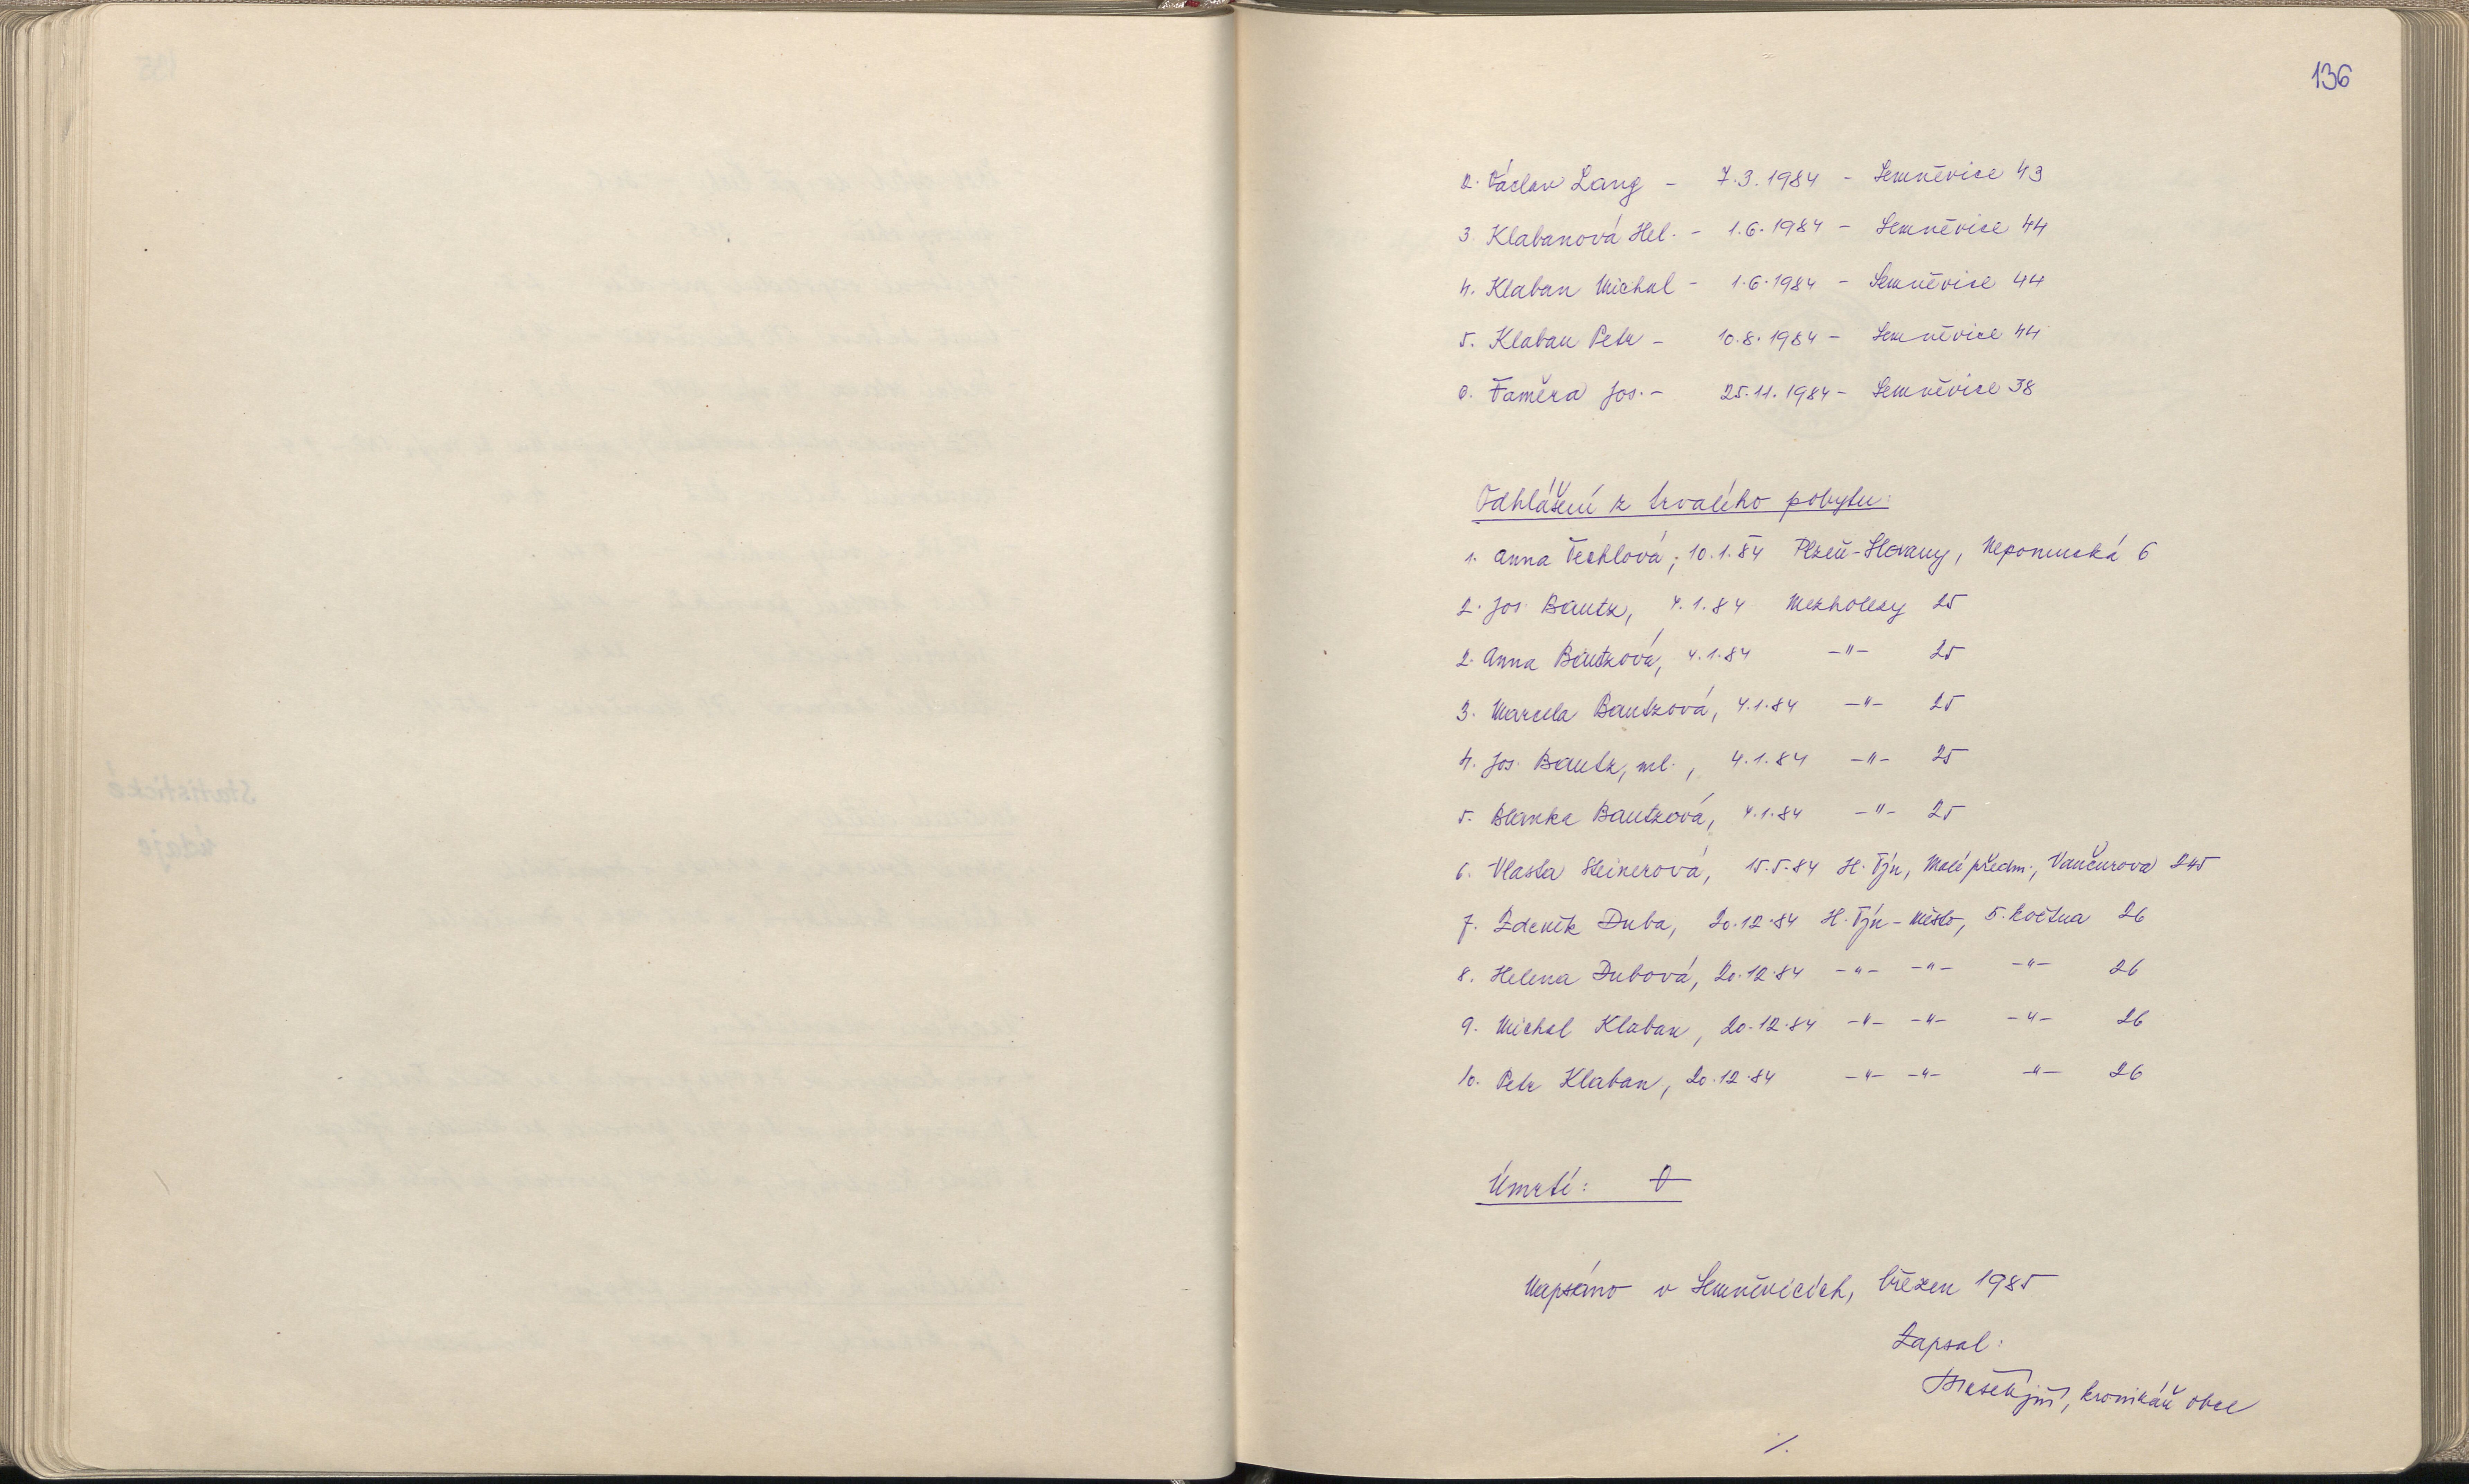 136
2. Václav Lang - 7.3.1984 - Semněvice 43
3. Klabanová Hel. - 1.6.1984 - Semněvice 44
4. Klaban Michal - 1.6.1984 - Semněvice 44
5. Klaban Petr - 10.8.1984 - Semněvice 44
6. Faměra Jos. - 25.11.1984 - Semněvice 38
Odhlášení z trvalého pobytu:
1. Anna Techlová; 10.1.84 Plzeň-Slovany, Nepomucká 6
2. Jos. Bautz, 4.1.84 Mezholezy 25
2. Anna Bautzová, 4.1.84 -"- 25
3. Marcela Bautzová, 4.1.84 -"- 25
4. Jos. Bautz, ml., 4.1.84 -"- 25
5. Blanka Bautzová, 4.1.84 -"- 25
6. Vlasta Steinerová, 15.5.84 H. Týn, Malé předm., Vančurova 245
7. Zdeněk Duba, 20.12.84 H. Týn - Město, 5. května 26
8. Helena Dubová, 20.12.84 -"- -"- -"- 26
9. Michal Klaban, 20.12.84 -"- -"- -"- 26
10. Petr Klaban, 20.12.84 -"- -"- -"- 26
Úmrtí: 0
Napsáno v Semněvicích, březen 1985
Zapsal:
kronikář obce
./.